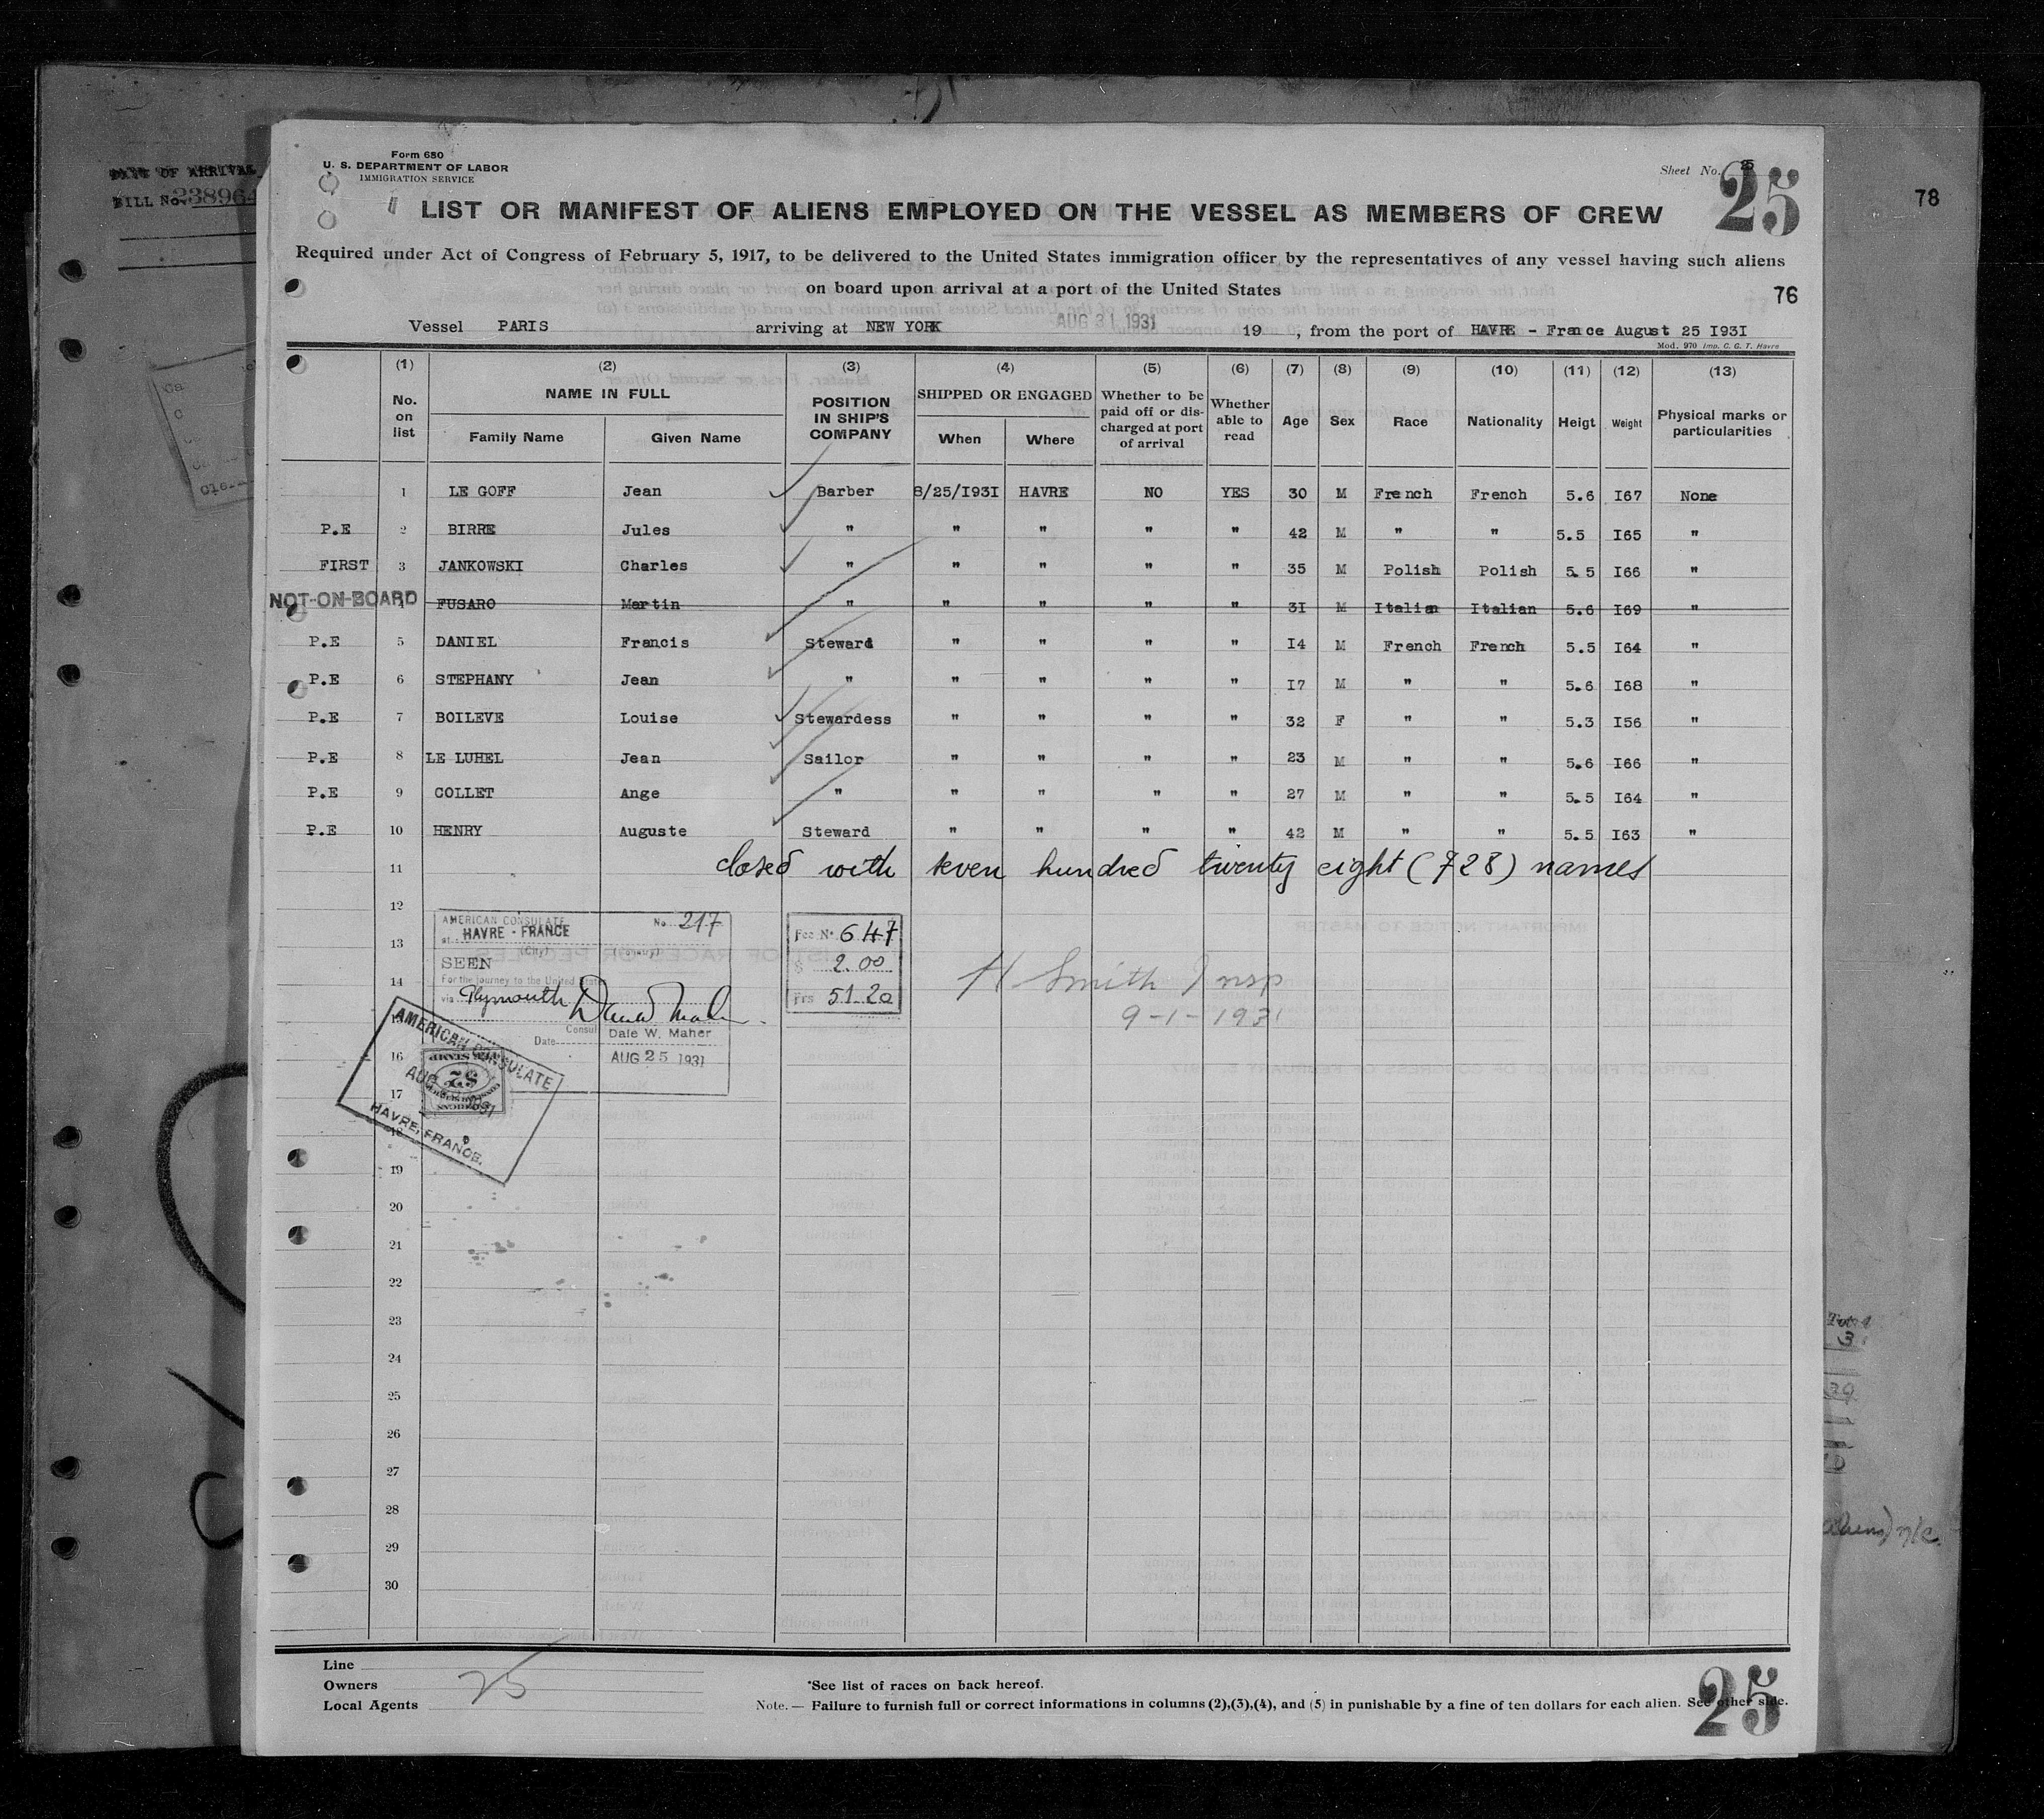 Form 680
U. S. DEPARTMENT OF LABOR
IMMIGRATION SERVICE
Sheet No. 25
25
DATE OF ARRIVAL
BILL No. 238964
78
LIST OR MANIFEST OF ALIENS EMPLOYED ON THE VESSEL AS MEMBERS OF CREW
Required under Act of Congress of February 5, 1917, to be delivered to the United States immigration officer by the representatives of any vessel having such aliens
on board upon arrival at a port of the United States
76
Vessel PARIS arriving at NEW YORK AUG 31 1931 19 , from the port of HAVRE - France August 25 I93I
Mod. 970 Imp. C. G. T. Havre
(1) (2) (3) (4) (5) (6) (7) (8) (9) (10) (11) (12) (13)
No. on list NAME IN FULL Family Name Given Name POSITION IN SHIP'S COMPANY SHIPPED OR ENGAGED When Where Whether to be paid off or dis-charged at port of arrival Whether able to read Age Sex Race Nationality Heigt Weight Physical marks or particularities
1 LE GOFF Jean Barber 8/25/I93I HAVRE NO YES 30 M French French 5.6 I67 None
P.E 2 BIRRE Jules " " " " " 42 M " " 5.5 I65 "
FIRST 3 JANKOWSKI Charles " " " " " 35 M Polish Polish 5.5 I66 "
NOT-ON-BOARD 4 FUSARO Martin " " " " " 3I M Italian Italian 5.6 I69 "
P.E 5 DANIEL Francis Steward " " " " I4 M French French 5.5 I64 "
P.E 6 STEPHANY Jean " " " " " I7 M " " 5.6 I68 "
P.E 7 BOILEVE Louise Stewardess " " " " 32 F " " 5.3 I56 "
P.E 8 LE LUHEL Jean Sailor " " " " 23 M " " 5.6 I66 "
P.E 9 COLLET Ange " " " " " 27 M " " 5.5 I64 "
P.E 10 HENRY Auguste Steward " " " " 42 M " " 5.5 I63 "
11 closed with seven hundred twenty eight (728) names
12
13
14
16
17
18
19
20
21
22
23
24
25
26
27
28
29
30
AMERICAN CONSULATE No. 217
at HAVRE - FRANCE
(City) (Country)
SEEN
For the journey to the United States
via Plymouth
Consul
Dale W. Maher
Date AUG 25 1931
Fee No 647
$ 2.00
Frs 51.20
H Smith Insp
9-1-1931
AMERICAN CONSULATE
AUG 25 1931
HAVRE, FRANCE.
Line
Owners
Local Agents
25
*See list of races on back hereof.
Note. — Failure to furnish full or correct informations in columns (2),(3),(4), and (5) in punishable by a fine of ten dollars for each alien. See other side.
25